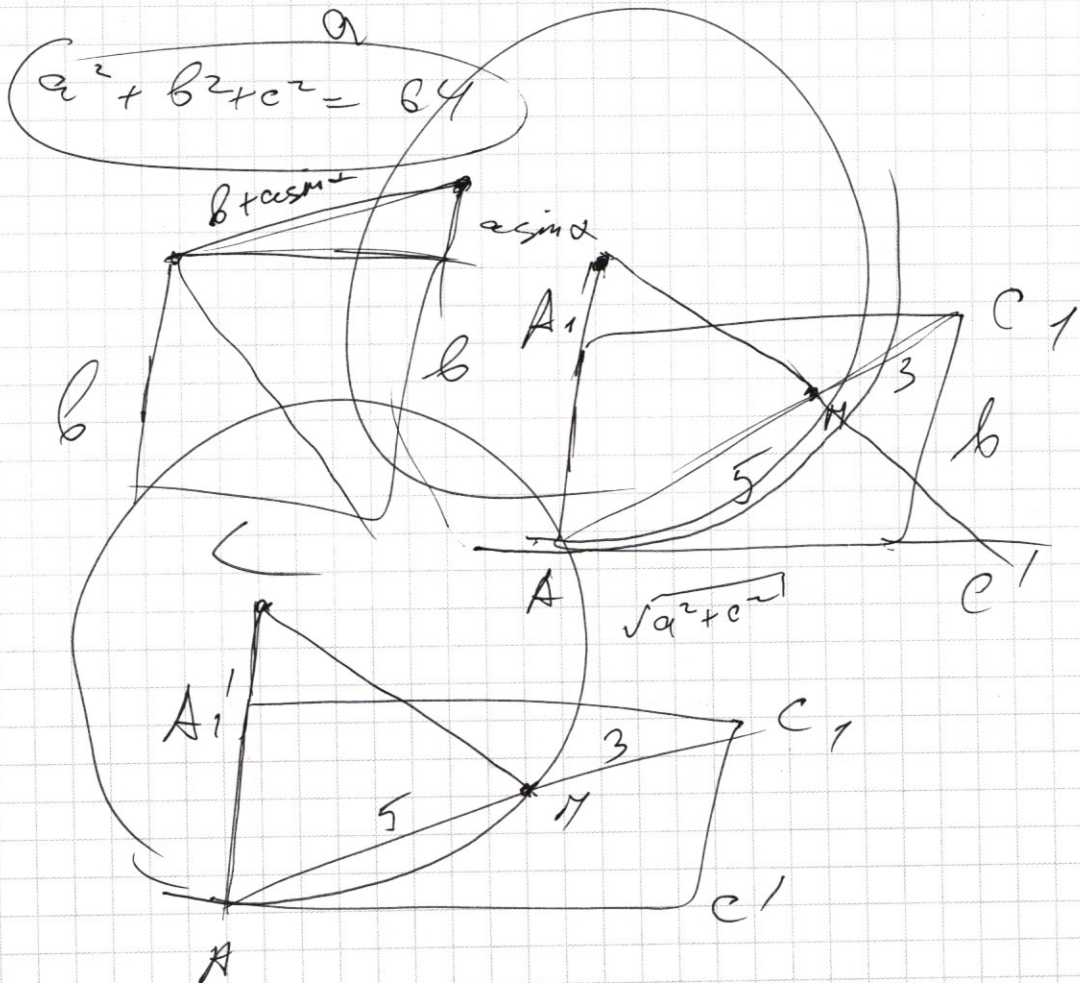 a
a² + b² + c² = 64
b + a sin α
a sin α
b
b
A₁'
C₁
3
M
b
5
A
√a² + c²
C'
A₁'
C₁
3
5
M
C'
A